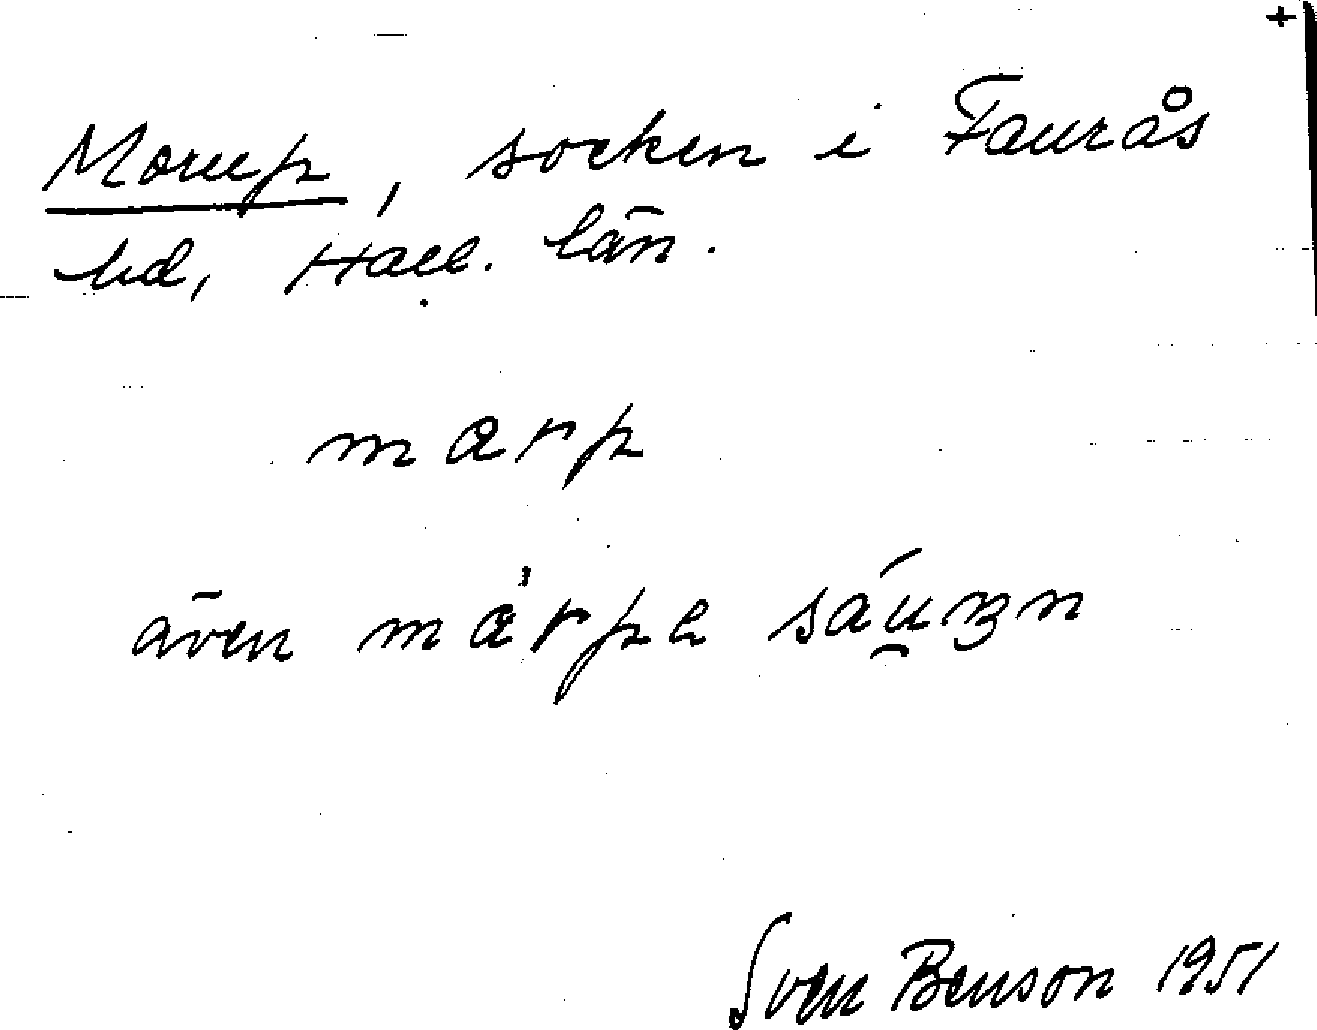 +
Morup, socken i Faurås
hd, Hall. län.
marp
även márpa sáu̯ȝn
Sven Benson 1951